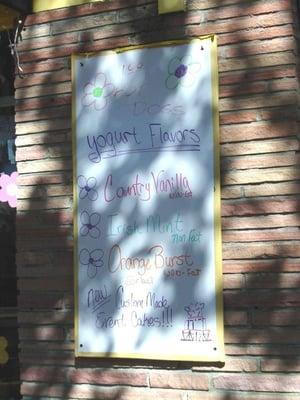 DOGS
yogurt Flavors
Country Vanilla
Irish Mint
Non Fat
Orange Burst
NEW Custom Made
Event Cakes!!!